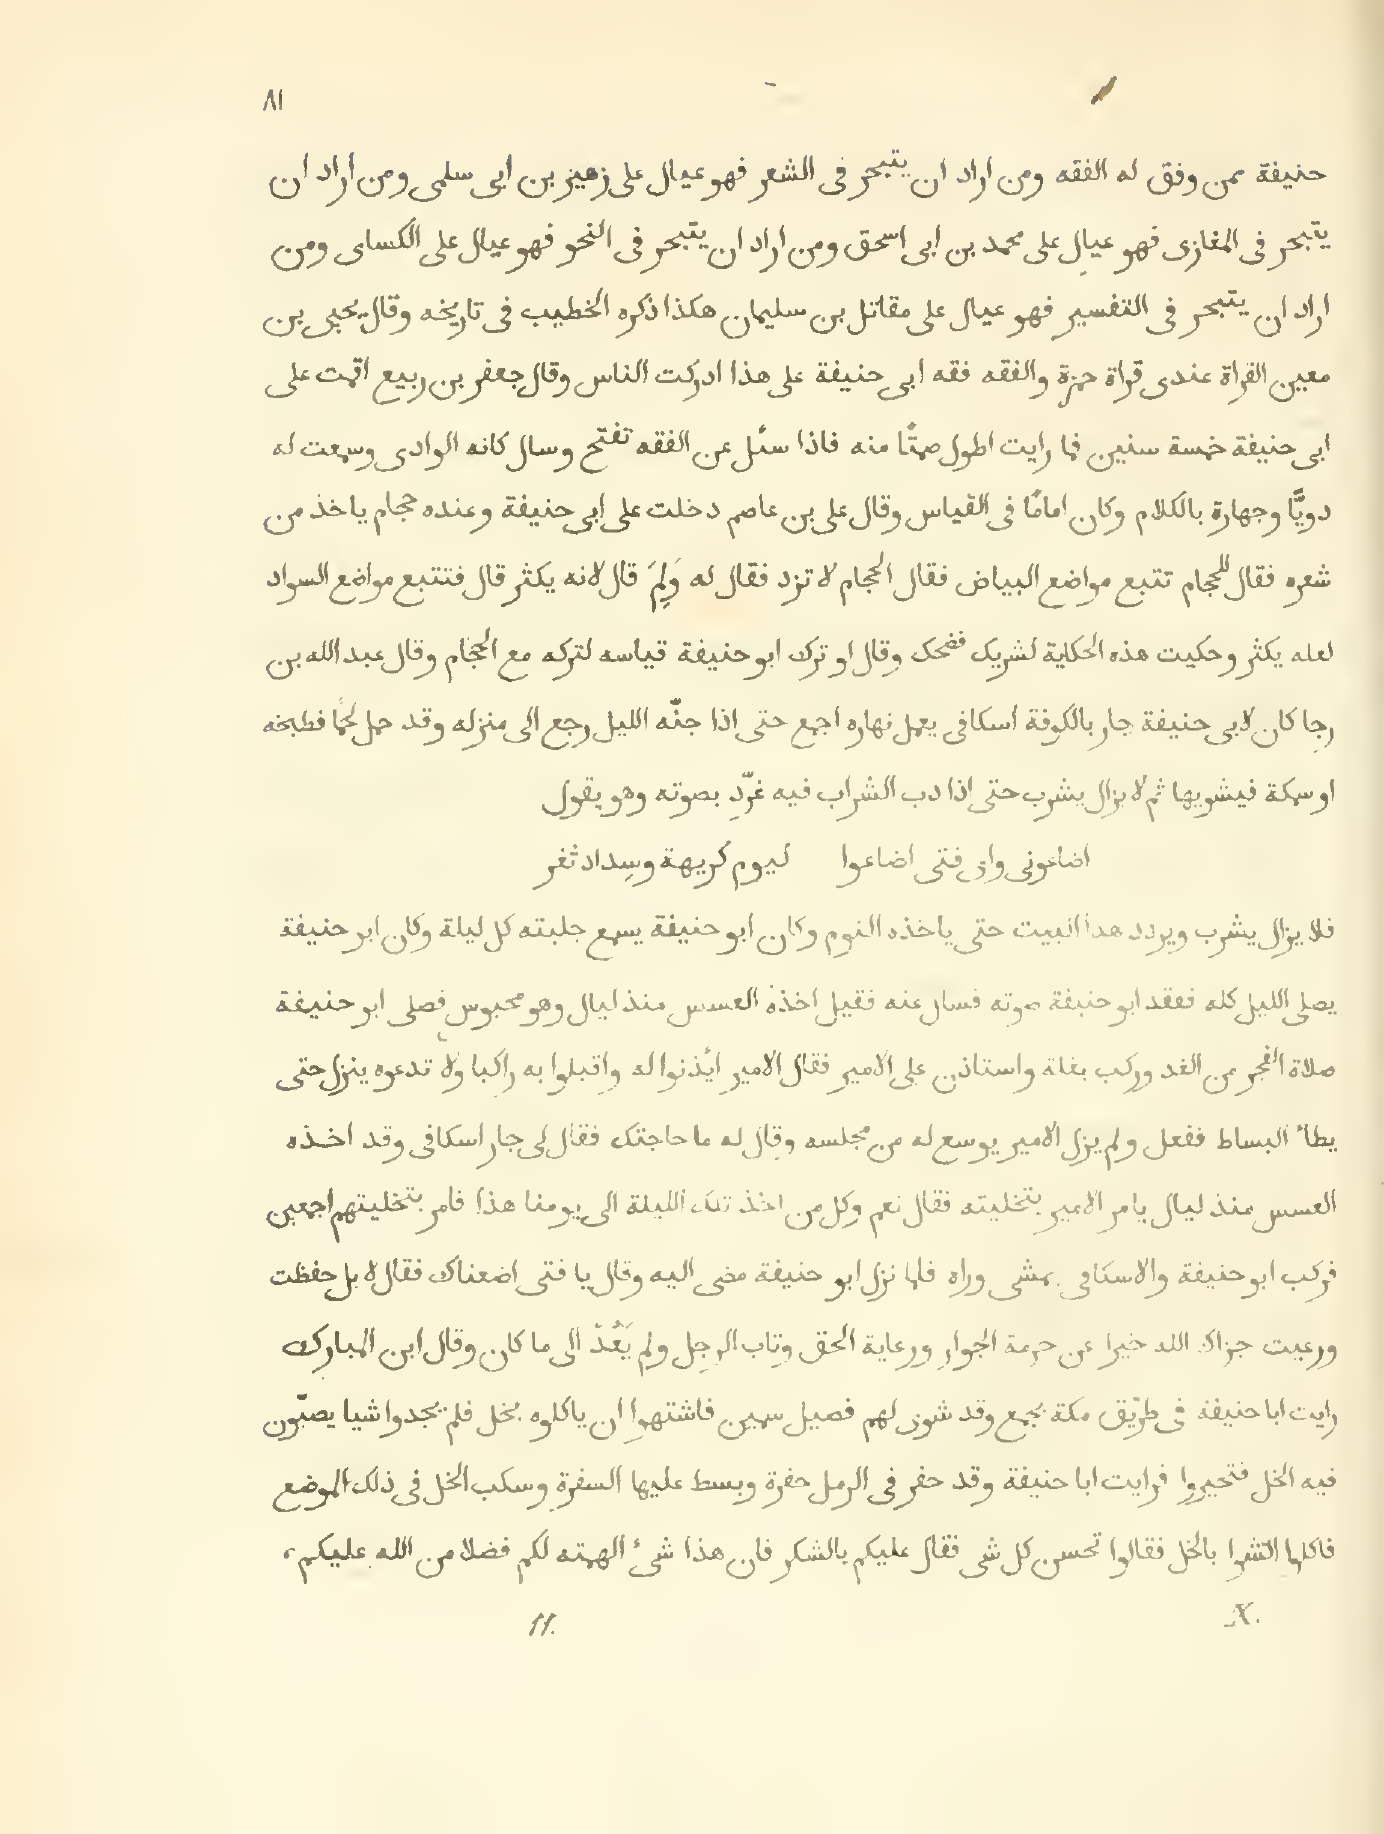 ٨١
حنيفة ممن وفق له الفقه ومن اراد ان يتبحر فى الشعر فهو عيال على زهير بن ابى سلمى ومن اراد ان
يتبحر فى المغازى فهو عيال على محمد بن ابى اسحق ومن اراد ان يتبحر فى النحو فهو عيال على الكساى ومن
اراد ان يتبحر فى التفسير فهو عيال على مقاتل بن سليمان هكذا ذكره الخطيب فى تاريخه وقال يحيى بن
معين القراة عندى قراة حمزة والفقه فقه ابى حنيفة على هذا ادركت الناس وقال جعفر بن ربيع اقمت على
ابى حنيفة خمسة سنين فما رايت اطول صمتًا منه فاذا سئل عن الفقه تفتح وسال كانه الوادى وسمعت له
دويًّا وجهارة بالكلام وكان امامًا فى القياس وقال على بن عاصم دخلت على ابى حنيفة وعنده حجام ياخذ من
شعره فقال للحجام تتبع مواضع البياض فقال الحجام لا تزد فقال له وَلِمَ قال لانه يكثر قال فتتبع مواضع السواد
لعله يكثر وحكيت هذه الحكاية لشريك فضحك وقال لو ترك ابو حنيفة قياسه لتركه مع الحجام وقال عبد الله بن
رجا كان لابى حنيفة جار بالكوفة اسكافى يعمل نهاره اجمع حتى اذا جنّه الليل رجع الى منزله وقد حمل لحمًا فطبخه
او سمكة فيشويها ثم لا يزال يشرب حتى اذا دب الشراب فيه غرّد بصوته وهو يقول
اضاعونى واى فتى اضاعوا ليوم كريهة وسِداد ثغر
فلا يزال يشرب ويردد هذا البيت حتى ياخذه النوم وكان ابو حنيفة يسمع جلبته كل ليلة وكان ابو حنيفة
يصلى الليل كله ففقد ابو حنيفة صوته فسال عنه فقيل اخذه العسس منذ ليال وهو محبوس فصلى ابو حنيفة
صلاة الفجر من الغد وركب بغلة واستاذن على الامير فقال الامير ايذنوا له واقبلوا به راكبا ولا تدعوه ينزل حتى
يطأ البساط ففعل ولم يزل الامير يوسع له من مجلسه وقال له ما حاجتك فقال لى جار اسكافى وقد اخذه
العسس منذ ليال يامر الامير بتخليته فقال نعم وكل من اخذ تلك الليلة الى يومنا هذا فامر بتخليتهم اجمعين
فركب ابو حنيفة والاسكافى يمشى وراه فلما نزل ابو حنيفة مضى اليه وقال يا فتى اضعناك فقال لا بل حفظت
ورعيت جزاك الله خيرا عن حرمة الجوار ورعاية الحق وتاب الرجل ولم يَعُدْ الى ما كان وقال ابن المبارك
رايت ابا حنيفة فى طريق مكة بجمع وقد شوى لهم فصيل سمين فاشتهوا ان ياكلوه بخل فلم يجدوا شيا يصبّون
فيه الخل فتحيروا فرايت ابا حنيفة وقد حفر فى الرمل حفرة وبسط عليها السفرة وسكب الخل فى ذلك الموضع
فاكلوا الشوا بالخل فقالوا تحسن كل شى فقال عليكم بالشكر فان هذا شئ الهمته لكم فضلا من الله عليكم ،
X. 11.